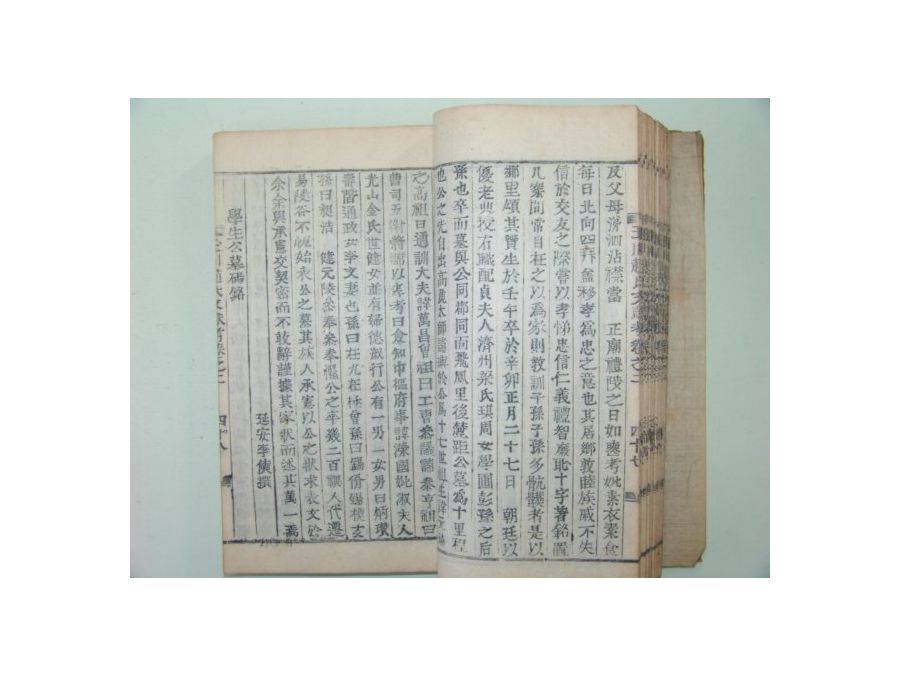 及父母澇泗沾襟當 正廟禮陵之日如喪考妣素衣素食
每日北向四拜盖移孝爲忠之意也其居鄕敦睦族戚不失
信於交友之際嘗以孝悌忠信仁義禮智廉恥十字書銘置
几案間常目在之以爲家則敎訓子孫子孫多骯髒者是以
鄕里頌其賢生於壬午卒於辛卯正月二十七日 朝廷以
優老典授右職配貞夫人濟州梁氏琪周女學圃彭孫之后
孫也卒而墓與公同鄕同面飛鳳里後麓距公墓爲十里程
也公之先自出高麗太師 於公爲十七世祖生諱
之高祖曰通訓大夫諱萬昌曾祖曰工曹參議諱泰辛祖曰
曹司五衛將 以壽考曰僉知中樞府事諱漢國妣淑夫人
光山金氏世健女並有婦德淑行公有一男一女男曰炳瓚
壽階通政女李文 妻也孫曰在九在 曾孫曰錫 錫 玄
孫曰挺浩 健元陵參奉 公之卒幾二百 人代遷
易陵谷不 始表公之墓其族人承憲以公之狀求表文於
余余與承憲交契密而不敢辭謹據其家狀而述其萬一焉
延安李 撰
學生公墓碣銘
四十八
玉川趙氏文獻考卷之二
四十七